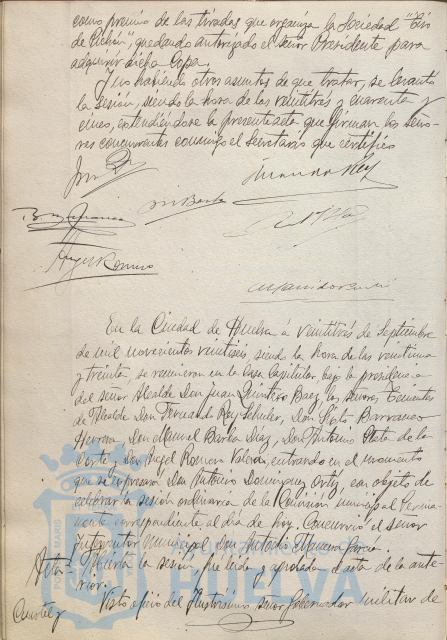 como premio de las tiradas que organiza la Sociedad "Tiro
de Pichón", quedando autorizado el señor Presidente para
adquirir dicha Copa.
Y no habiendo otros asuntos de que tratar, se levanta
la sesión, siendo la hora de las veintitrés y cuarenta y
cinco, extendiéndose la presente acta que firman los Seño-
res concurrentes conmigo el Secretario que certifico
Fernando Rey
M Barba
Angel Romero
En la Ciudad de Huelva á veintitrés de Septiembre
de mil novecientos veintiseis, siendo la hora de las veintiuna
y treinta, se reunieron en la Casa Capitular, bajo la presidencia
del señor Alcalde Don Juan Quintero Baez, los señores Tenientes
de Alcalde Don Fernando Rey Schuler, Don Sixto Barranco
Herrera, Don Manuel Barba Díaz, Don Antonio de la
Corte y Don Angel Romero Valera, entrando en el momento
que se expresará Don Antonio Dominguez Ortiz, con objeto de
celebrar la sesión ordinaria de la Comisión municipal Perma-
nente correspondiente al día de hoy. Concurrió el señor
Interventor Municipal Don Antonio García.
Acta Abierta la sesión, fué leida y aprobada el acta de la ante-
rior.
Visto oficio del Ilustrísimo señor Gobernador militar de
PORTUS MARIS
HUELVA